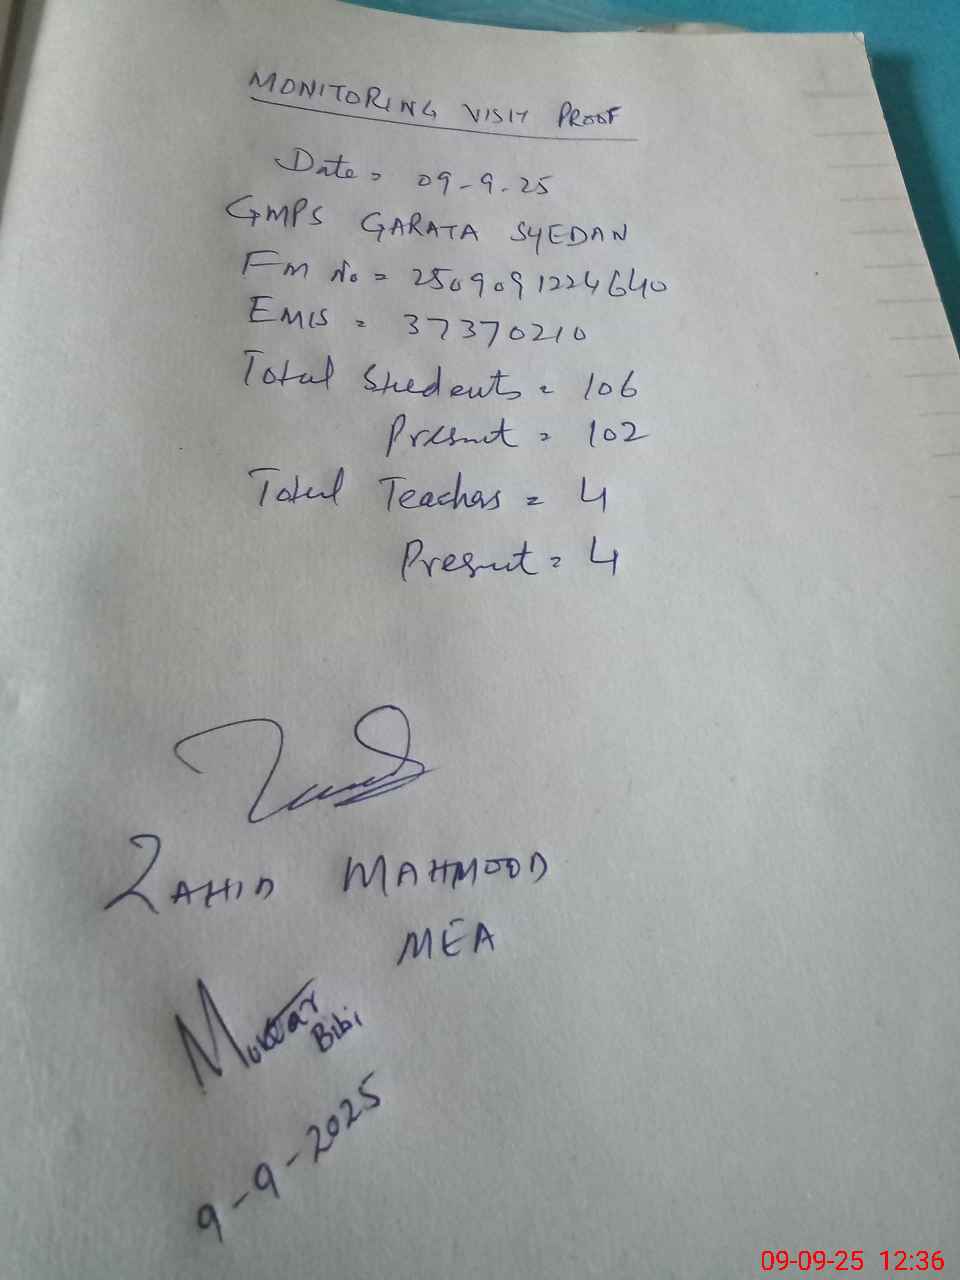 MONITORING VISIT PROOF
Date = 09-9-25
GMPS GARATA SYEDAN
Fm No = 2509091224640
EMIS = 37370210
Total Students = 106
Present = 102
Total Teachers = 4
Present = 4
ZAHID MAHMOOD
MEA
Muktar
Bibi
9-9-2025
09-09-25 12:36